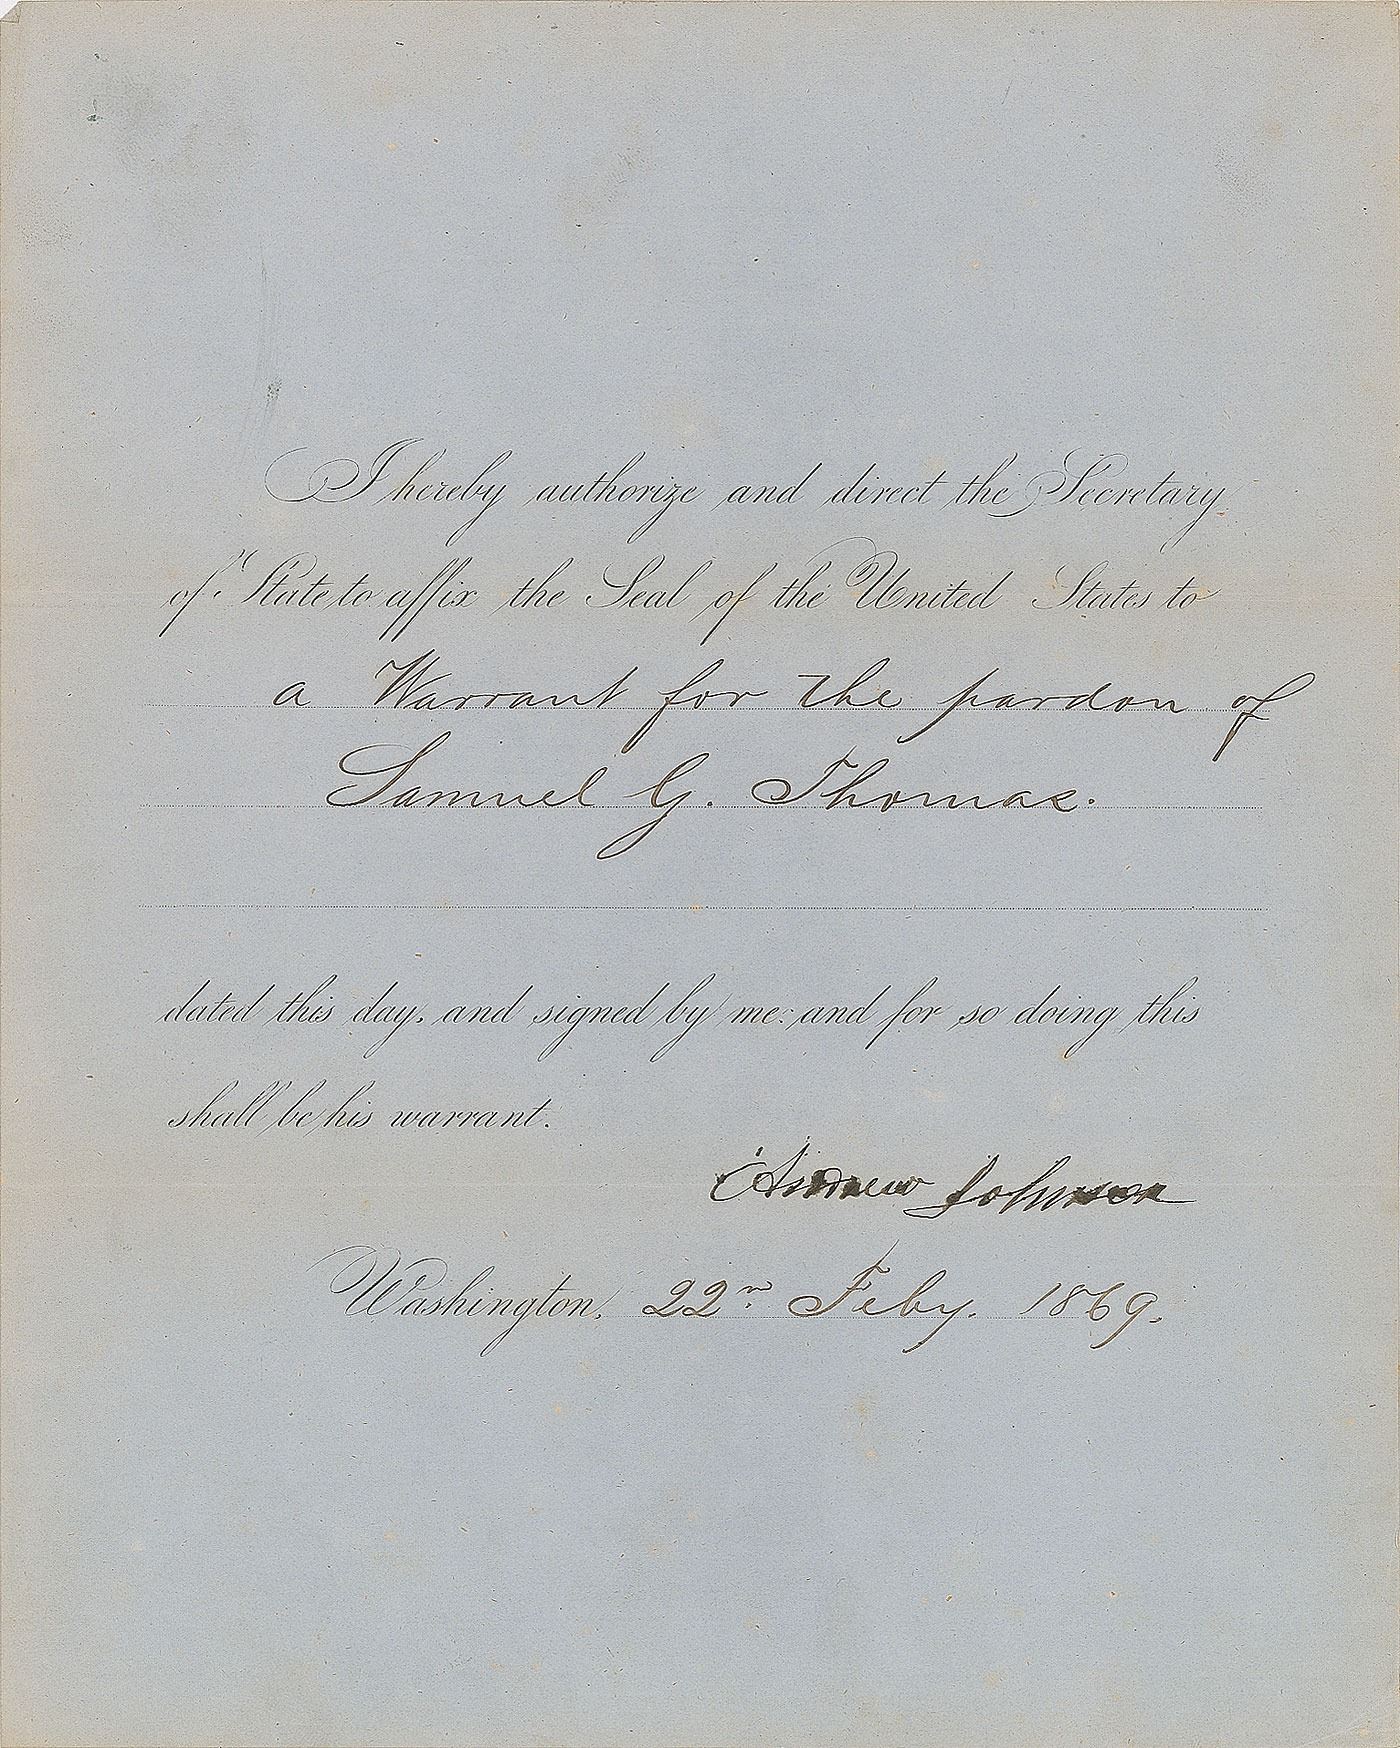 I hereby authorize and direct the Secretary
of State to affix the Seal of the United States to
a Warrant for the pardon of
Samuel G. Thomas.
dated this day, and signed by me: and for so doing this
shall be his warrant.
Andrew Johnson
Washington, 22ⁿ Feby. 1869.